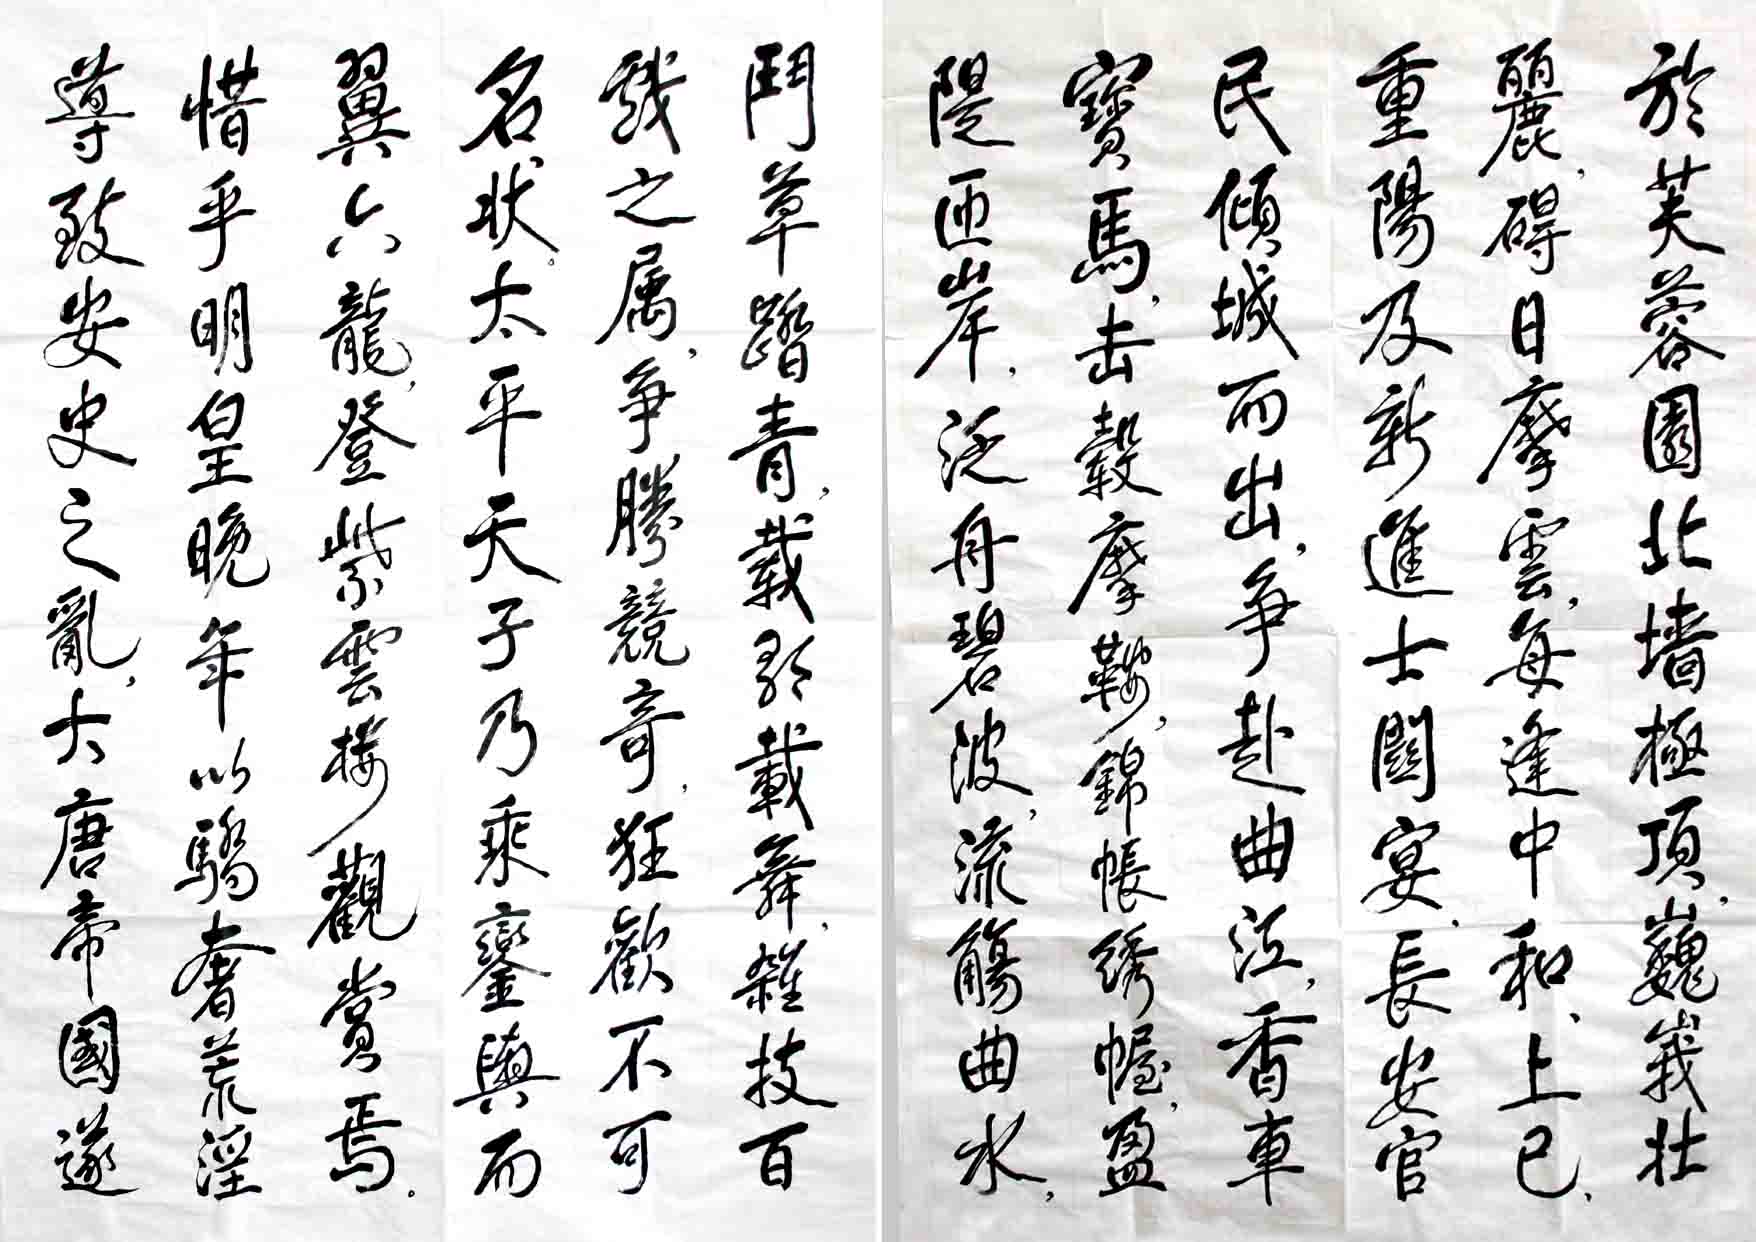 於芙蓉園北墙極頂，巍峩壮
麗，碍日摩雲，每逢中和、上巳、
重陽及新進士關宴，長安官
民傾城而出，争赴曲江，香車
寶馬，击毂摩鞍，錦帳绣幄，盈
隄匝岸，泛舟碧波，流觴曲水，
鬥草踏青，载歌載舞，雜技百
戏之属，争勝競奇，狂歡不可
名状。太平天子乃乘鑾輿而
翼六龍，登紫雲楼觀赏焉。
惜乎明皇晚年以驕奢荒淫
導致安史之亂，大唐帝國遂